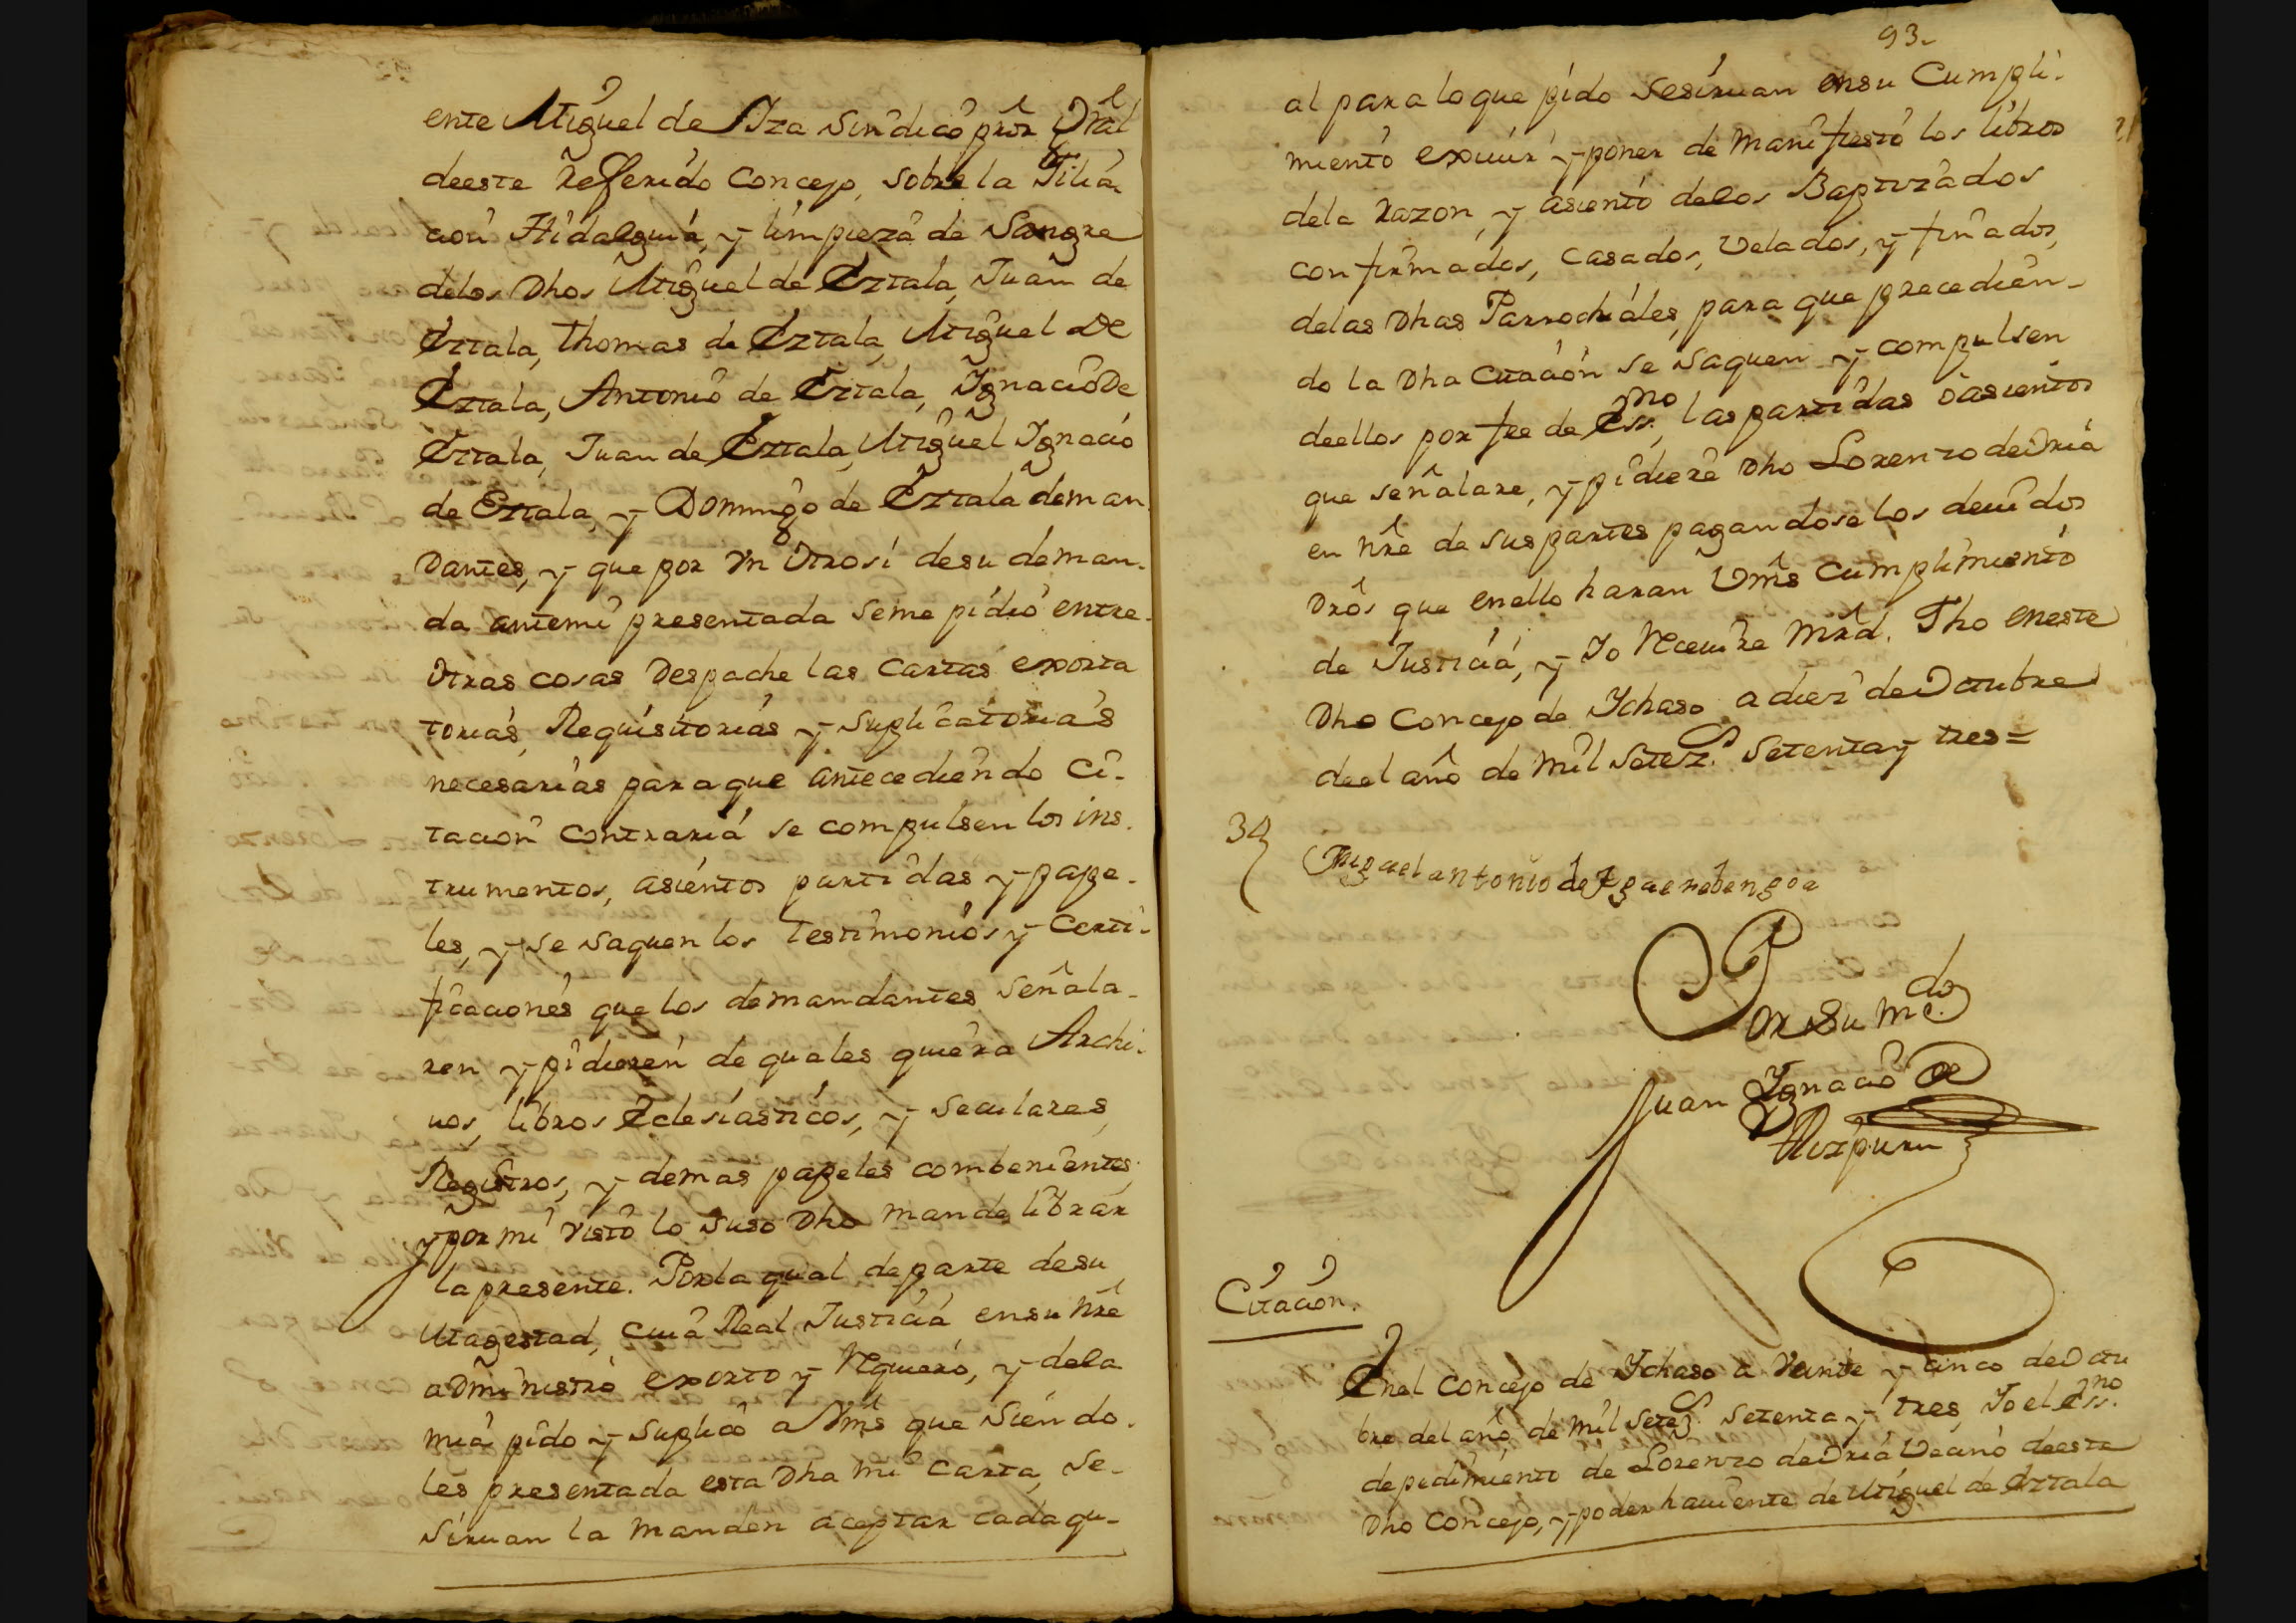 ente Miguel de Aza Sindico prôr Grâl
deeste Referido Concejo, sobre la Filia
cion Hidalguia, y limpieza de Sangre
delos Dhos Miguel de Eztala, Juan de
Eztala, Thomas de Eztala, Miguel De
Eztala, Antonio de Eztala, Ygnacio De
Eztala, Juan de Eztala, Miguel Ygnacio
de Eztala, y Domingo de Eztala deman
Dantes, y que por Vn Otrosi desu deman-
da antemi presentada seme pidio entre
Otras cosas Despache las Cartas exorta
torias, Requisitorias y Suplicatorias
necesarias paraque antecediendo Ci-
tacion contraria se compulsen los ins-
trumentos, asientos partidas y pape-
les, y se saquen los testimonios y Certi-
ficaciones que los demandantes señala-
ren y pidieren de quales quiera Archi-
uos, libros Eclesiasticos, y Seculares,
Registros, y demas papeles combenientes,
y por mi visto lo suso Dho mande librar
la presente. Porla qual departe desu
Magestad, cuia Real Justicia ensu nrê
administro exorto y Requiero, y dela
mia pido y Suplico a Vms que Siendo-
les presentada esta Dha mi Carta, se-
siruan la manden aceptar cadaqu-
93.
al paraloque pido sesiruan ensu Cumpli-
miento exiuir y poner de manifiesto los libros
dela razon, y asiento delos Baptizados
confirmados, casados, Velados, y finados,
delas Dhas Parrochiales, para que precedien-
do la Dha Citacion se saquen y compulsen
deellos por fee de Essno, las partidas o asientos
que señalare, y pidiere Dho Lorenzo de Oria
en nrê de sus partes pagandose los deuidos
Drôs que enello haran Vms Cumplimiento
de Justicia, y Yo Receuire Mrd. Fho eneste
Dho Concejo de Ychaso a diez de Octubre
deel año de mil Setez.s Setenta y tres=
34
Miguel antonio de Yguerabengoa
Por Su Mrd.do
Juan Ygnacio de
Aizpuru
Citacion.
Enel Concejo de Ychaso a Veinte y cinco de Octu
bre del año de mil Setez.s Setenta y tres, Yo el Essno.
depedimiento de Lorenzo de Oria Vecino deeste
Dho Concejo, y poder hauiente de Miguel de Eztala